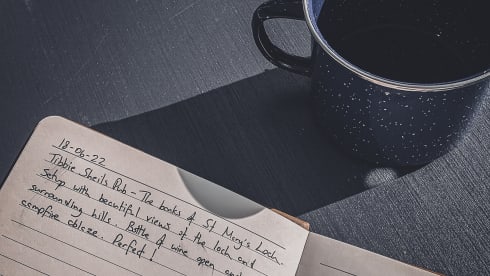 18-06-22
Tibbie Sheils Pub - The banks of St Mary's Loch.
Setup with beautiful views of the loch and
surrounding hills. Bottle of wine open and
campfire ablaze. Perfect!